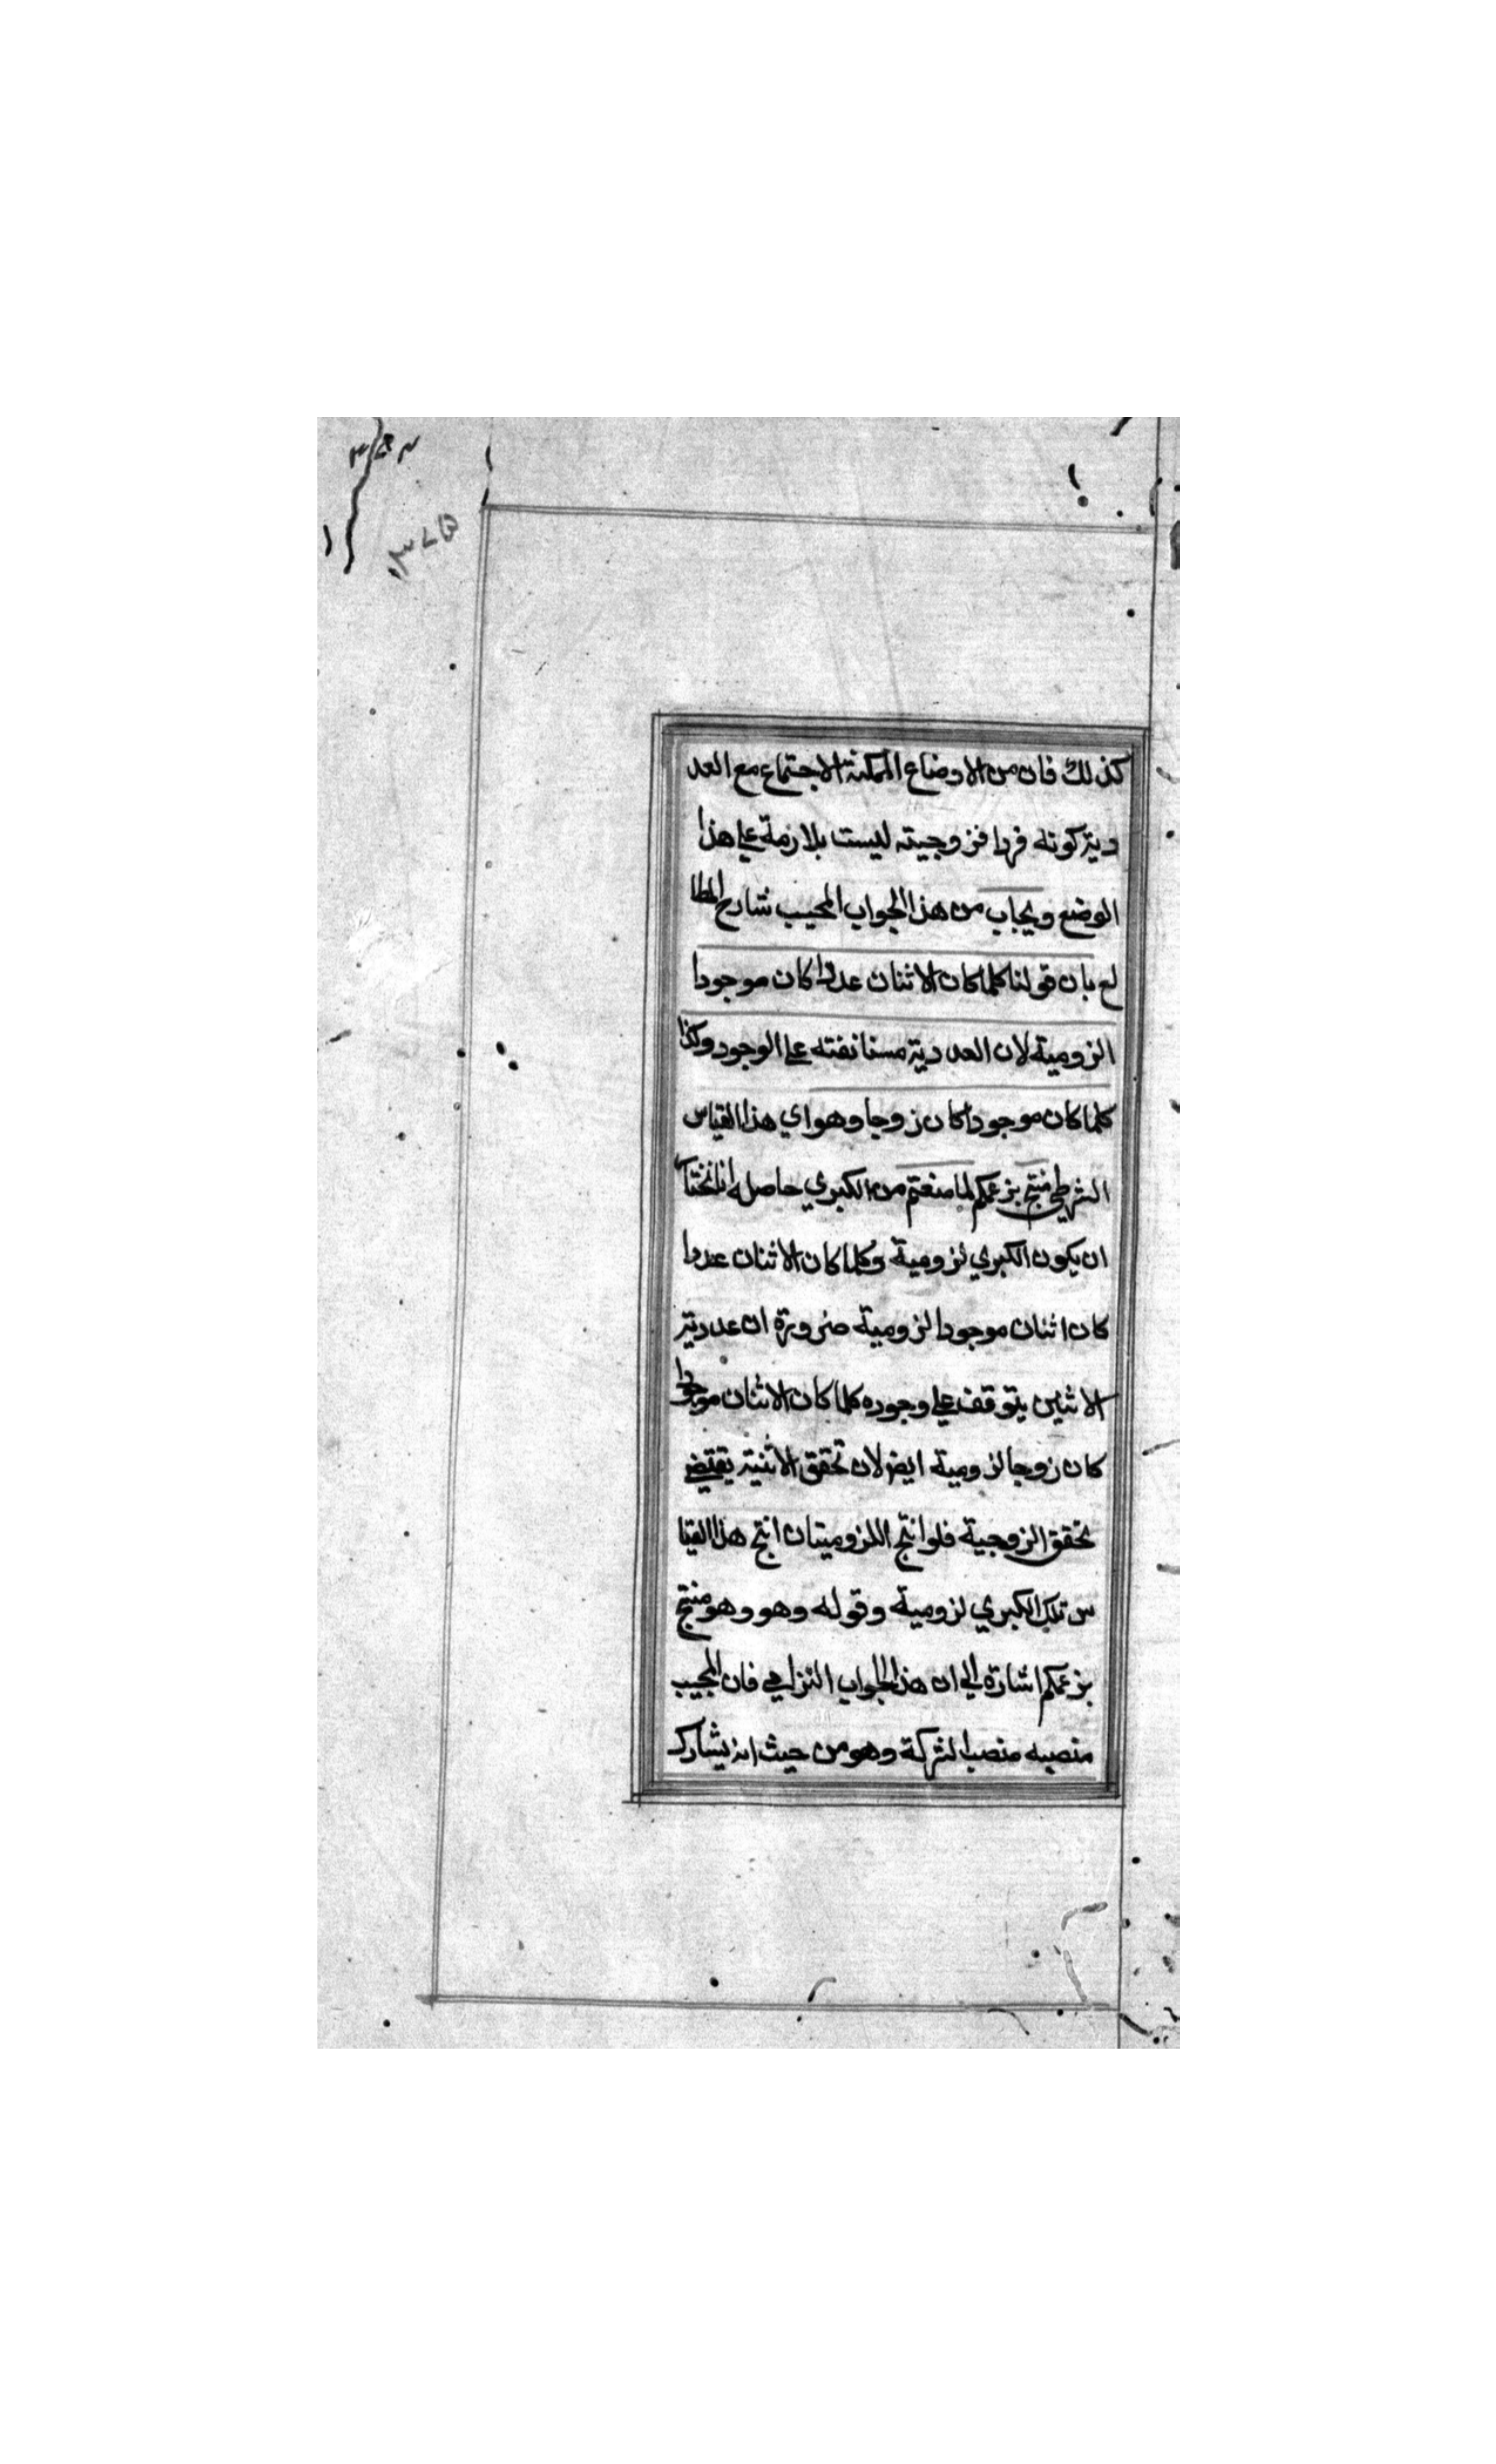 ٣٧٥
كذلك فان من الاوضاع الممكنة الاجتماع مع العد
دية كونه فردا فزوجيته ليست بلازمة علي هذا
الوضع ويجاب من هذا الجواب المجيب شارح المطا
لع بان قولنا كلما كان الاثنان عددا كان موجودا
لزومية لان العددية مستانفته علي الوجود وكذا
كلما كان موجودا كان زوجا وهو اي هذا القياس
الشرطي منتج بزعمكم لما منعتم من الكبري حاصله انا نختا
ان يكون الكبري لزومية وكلما كان الاثنان عددا
كان اثنان موجودا لزومية ضرورة ان عددية
الاثنين يتوقف علي وجوده كلما كان الاثنان موجودا
كان زوجا لزومية ايض لان تحقق الاثنية يقتضي
تحقق الزوجية فلو انتج اللزوميتان انتج هذا القيا
س تلك الكبري لزومية وقوله وهو وهو منتج
بزعمكم اشارة الي ان هذا الجواب الزامي فان المجيب
منصبه منصب الشركة وهو من حيث انه يشارك